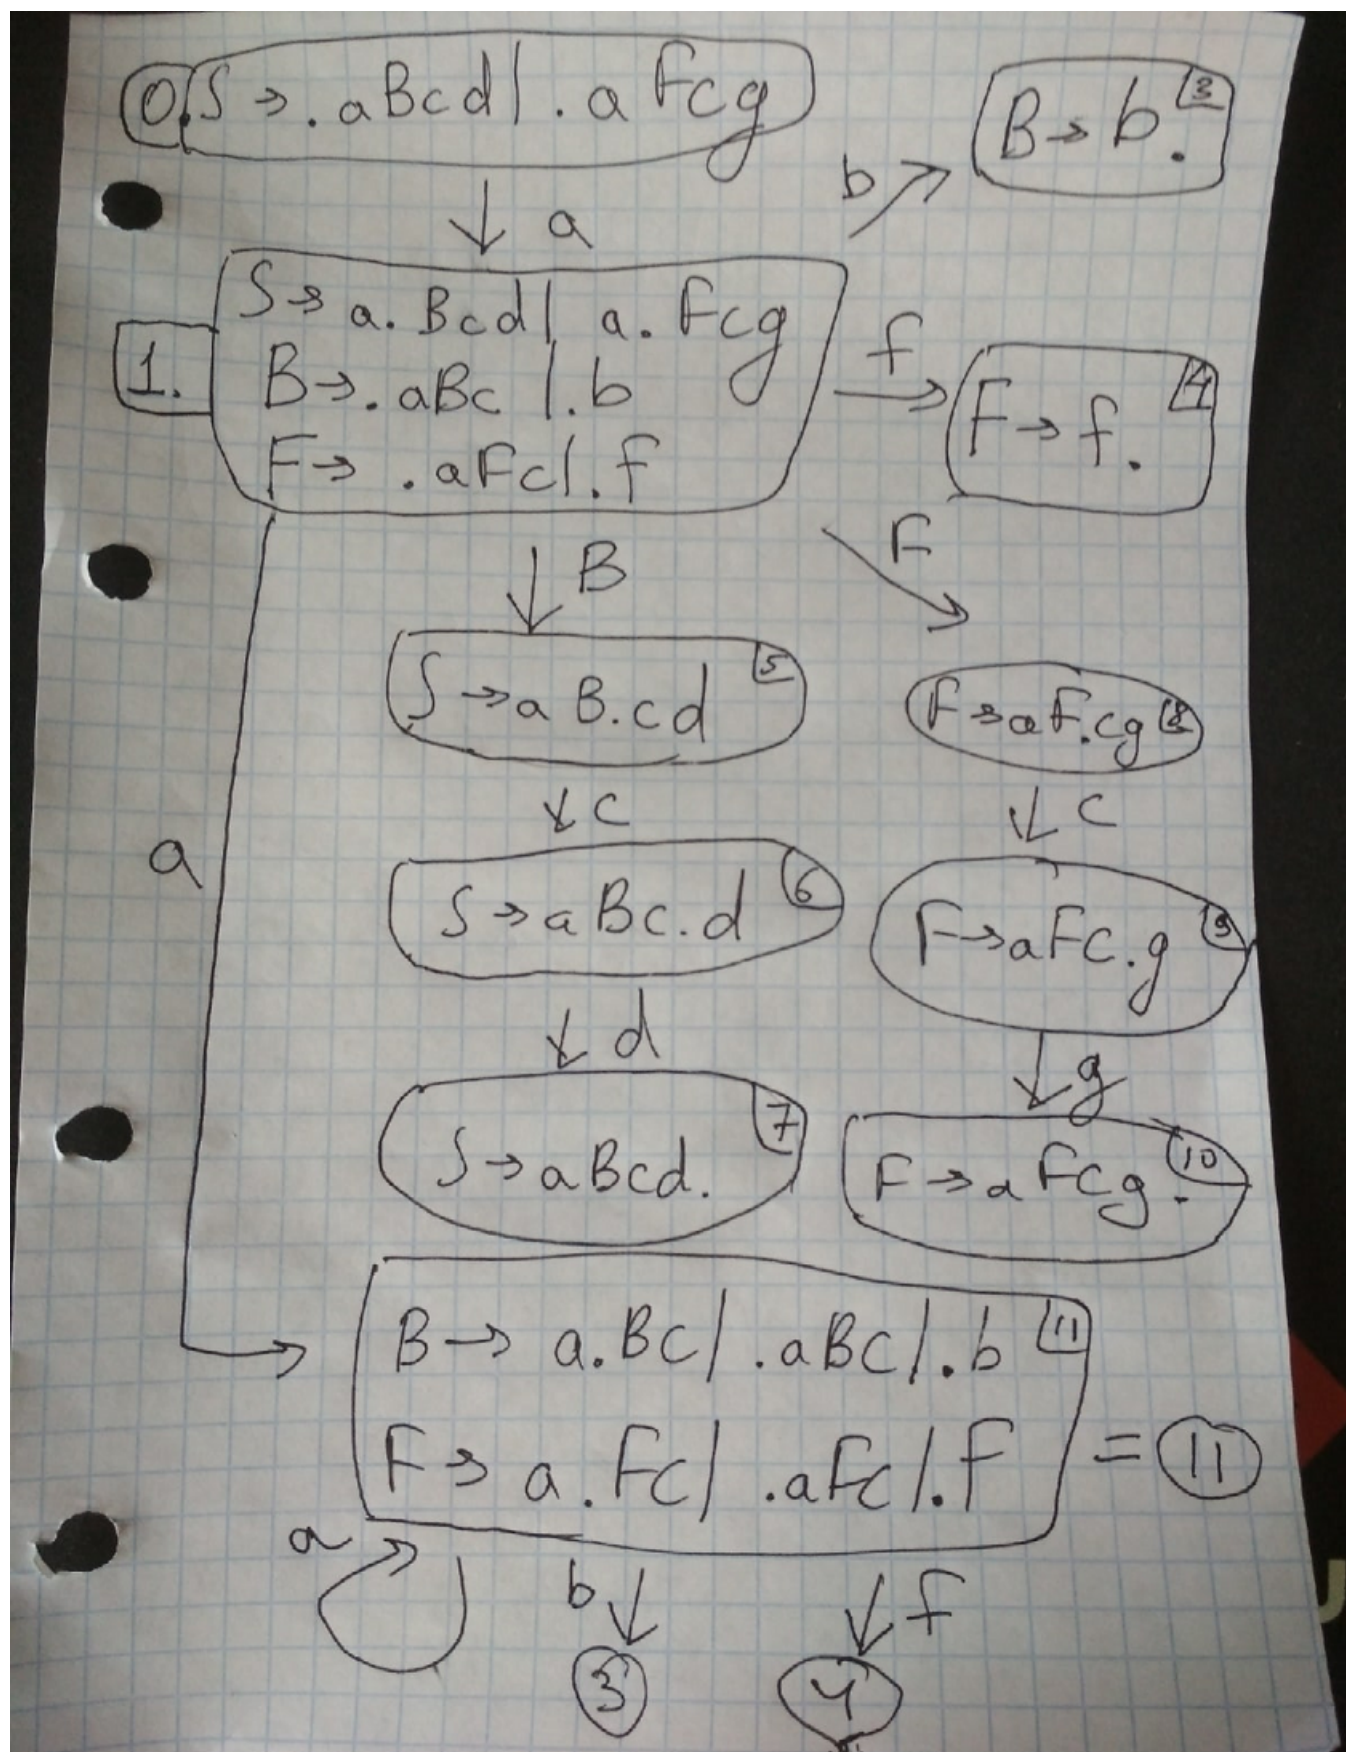 0. S → .aBcd | .aFcg
B → b. 3
b
a
S → a.Bcd | a.Fcg
1. B → .aBc | .b
F → .aFc | .f
f
F → f. 4
B
F
S → aB.cd 5
F → aF.cg 8
c
c
a
S → aBc.d 6
F → aFc.g 9
d
g
S → aBcd. 7
F → aFcg. 10
B → a.Bc | .aBc | .b 11
F → a.Fc | .aFc | .f = 11
a
b
f
3
4